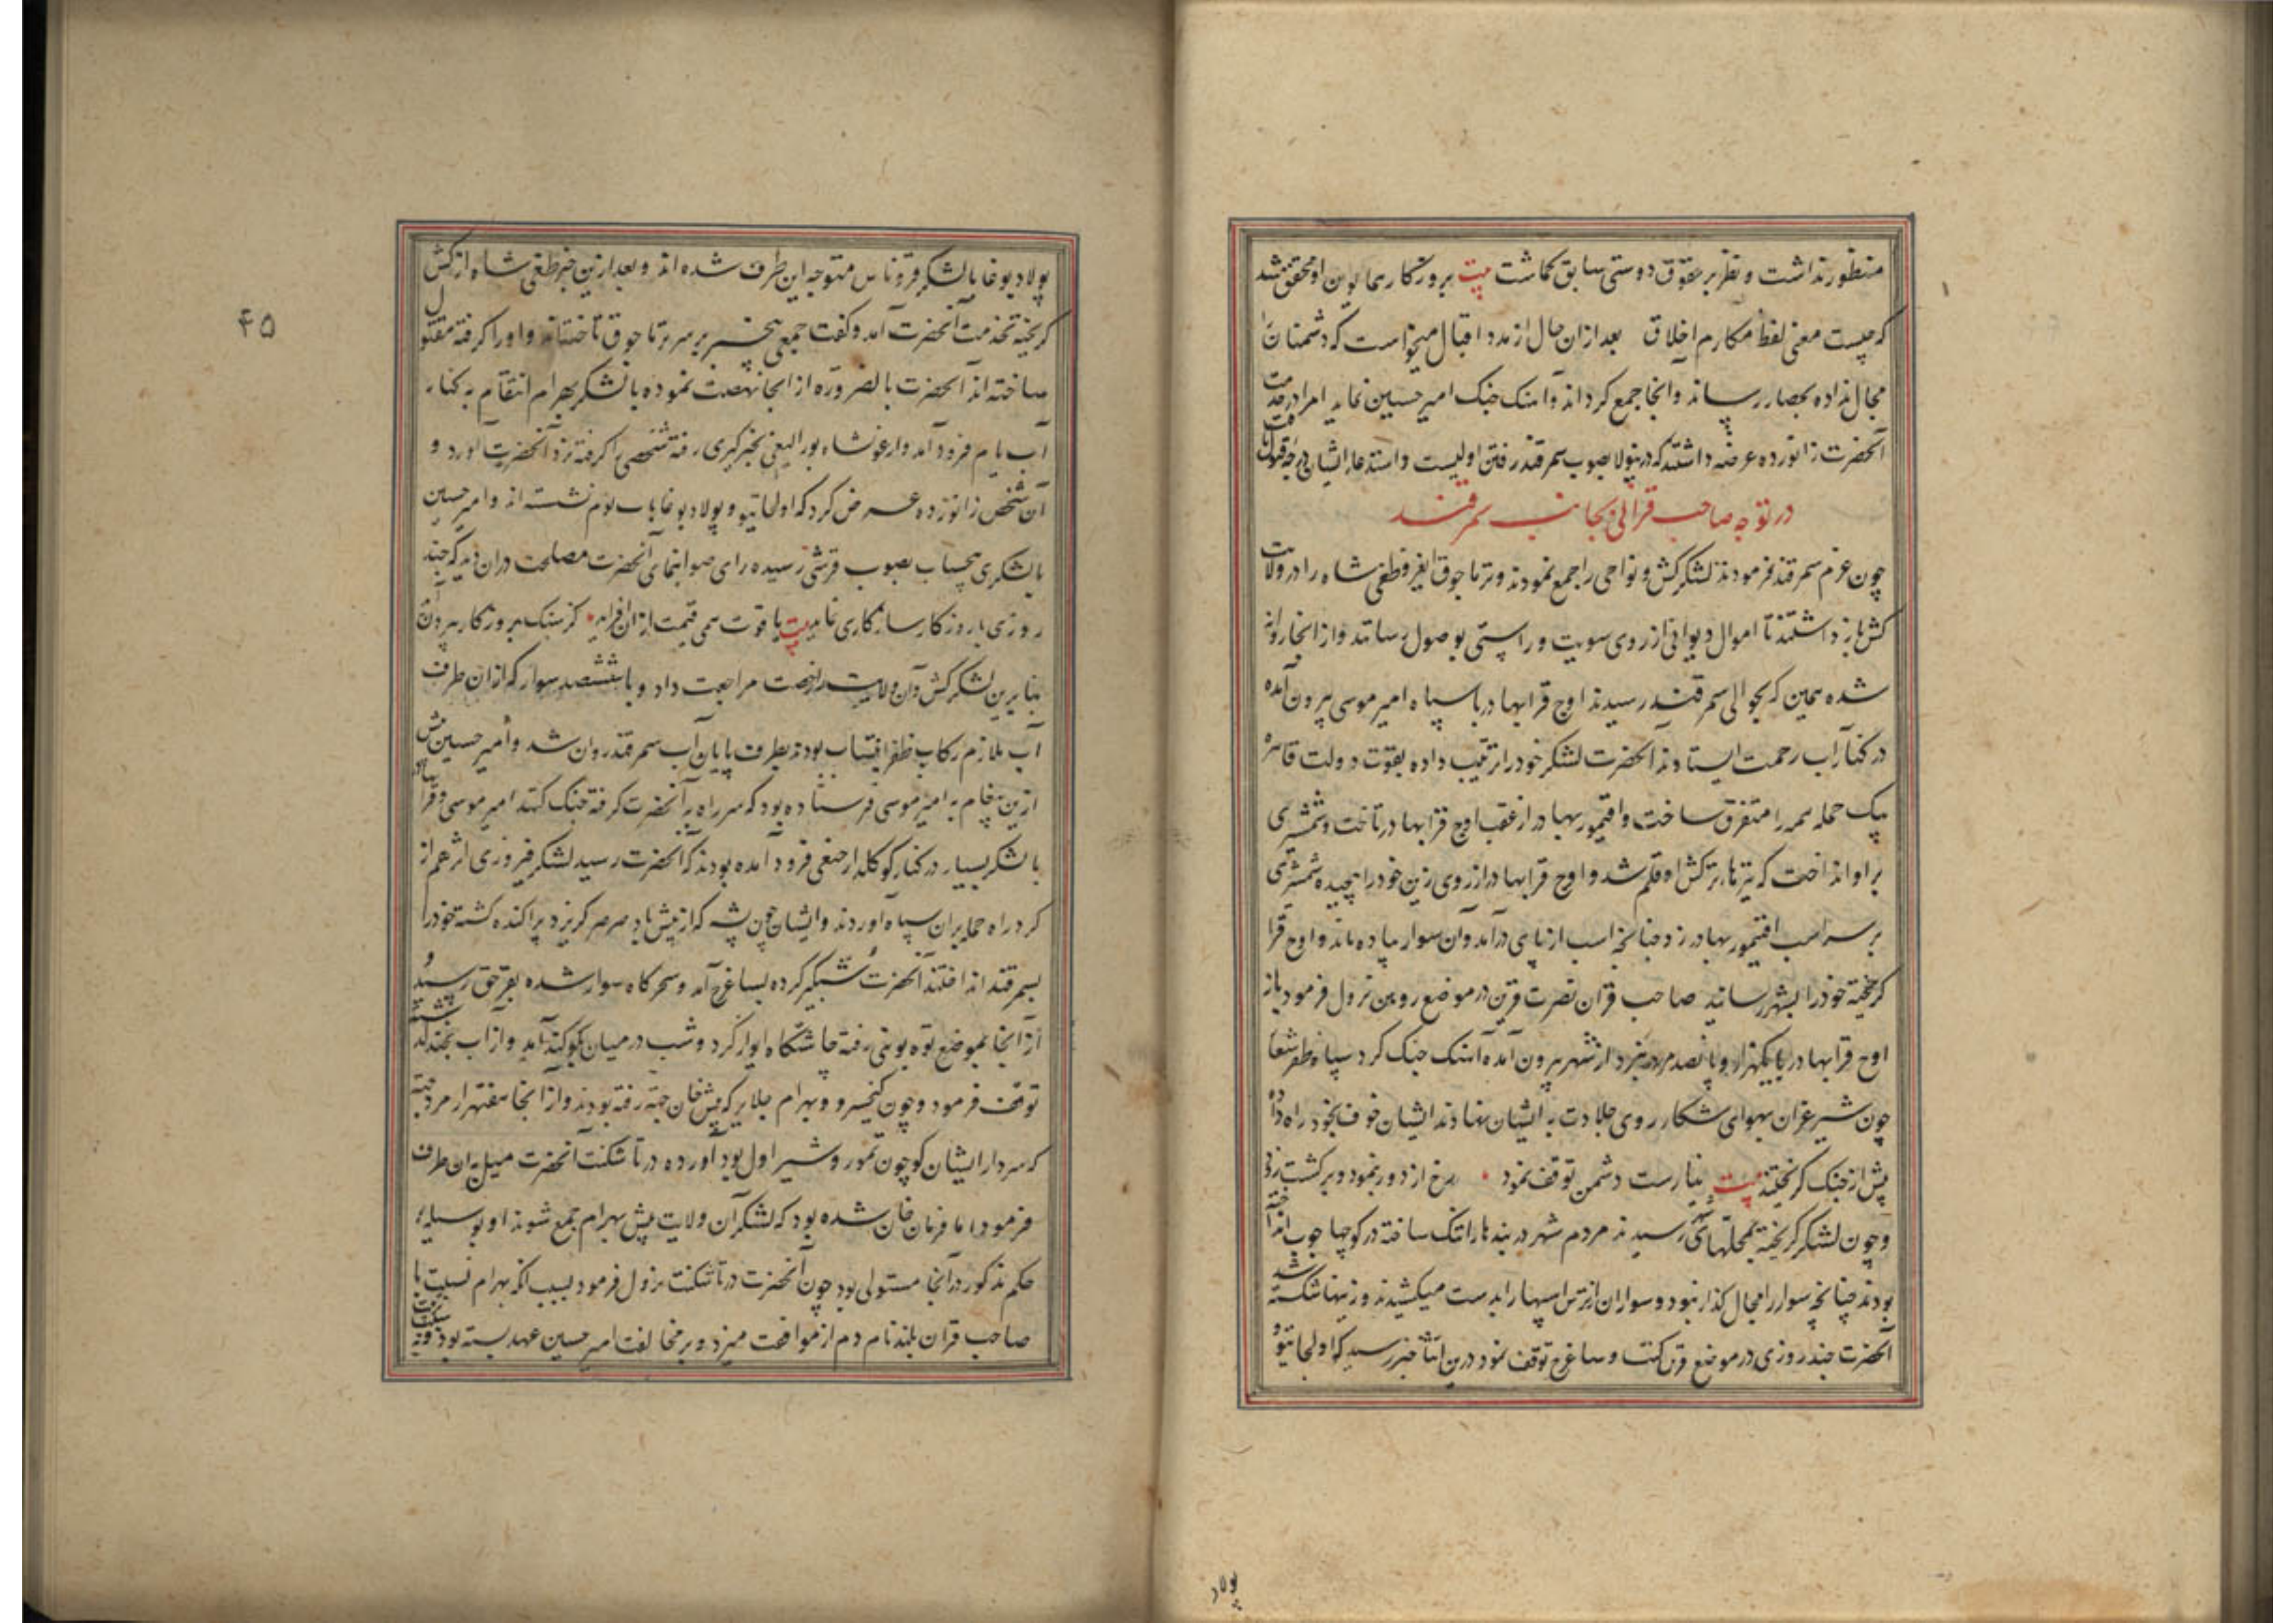 منظور نداشت و نظر بر حقوق دوستی سابق گماشت بیت بروزگار همایون او محقق شد
که چیست معنی لفظ مکارم اخلاق بعد ازان حال از مدد اقبال میخواست که دشمنان را
مجال نداده بحصار رساند و آنجا جمع کرداند و آهنک جنک امیر حسین نماید امرا در خدمت
آنحضرت زانو زده عرضه داشتند که درینولا بصوب سمرقند رفتن اولیست و استدعاء ایشان درجه قبول یافت
در توجه صاحب قرانی بجانب سمرقند
چون عزم سمرقند فرمودند لشکر کش و نواحی را جمع نمودند و برتاجوق ایغر و طغی شاه را در ولایت
کش باز داشتند تا اموال دیوانی از روی سویت و راستی بوصول رسانند و از انجا روانه
شده همین که بحوالی سمرقند رسیدند اوج قرابهادر با سپاه امیر موسی بیرون آمده
در کنار آب رحمت ایستادند آنحضرت لشکر خود را ترتیب داده بقوت دولت قاهره
بیک حمله همه را متفرق ساخت و اقتیمور بهادر از عقب اوج قرابهادر تاخت و شمشیری
بر او انداخت که تیرهاء ترکش او قلم شد و اوج قرابهادر از روی زین خود را پیچیده شمشیری
بر سر اسب اقتیمور بهادر زد چنانچه اسب از پای درآمد و آن سوار پیاده ماند و اوج قرا
کریخته خود را بشهر رسانید صاحب قران نصرت قرین در موضع روین نزول فرمود باز
اوج قرابهادر با یکهزار و پانصد مرد نبرد از شهر بیرون آمده آهنک جنک کرد سپاه ظفر شعار
چون شیر غران بهوای شکار روی جلادت به ایشان نهادند ایشان خوف بخود راه داده
پیش از جنک کریختند بیت نیارست دشمن توقف نمود رخ از دور بنمود و برکشت زود
و چون لشکر کریخته بمحلتهای رسیدند مردم شهر دربندها را تنک ساخته در کوچها چوب انداخته
بودند چنانچه سوار را مجال کذار نبود و سواران از ترس اسپها را بدست میکشیدند و زینها شکسته شد
آنحضرت چند روزی در موضع قرن کنت و ساغرج توقف نمود درین اثنا خبر رسید که اولجایتو و
پولاد
۴۵
پولاد بوغا با لشکر قروناس متوجه این طرف شده اند و بعد ازین خبر طغی شاه از کش
کریخته بخدمت آنحضرت آمد و کفت جمعی بیخبر بر سر برتاجوق تاختند و او را کرفته مقتول
ساخته اند آنحضرت بالضروره از انجا نهضت نموده با لشکر بهرام انتقام به کنار
آب یام فرود آمد و ارغونشاه بورالیغی بخبر کیری رفته شخصی را کرفته نزد آنحضرت آورد و
آن شخص زانو زده عرض کرد که اولجایتو و پولاد بوغا باب یوم نشسته اند و امیر حسین
با لشکری بیحساب بصوب قرشی رسیده رای صوابنمای آنحضرت مصلحت دران دید که چند
روزی با روزکار سازکاری نماید بیت یاقوت همی قیمت ازان افزاید کز سنک بروزکار بیرون آید
بنابرین لشکر کش و آن ولایت را رخصت مراجعت داد و با ششصد سوار که ازان طرف
آب ملازم رکاب ظفر انتساب بودند بطرف پایان آب سمرقند روان شد و امیر حسین پیش
ازین پیغام به امیر موسی فرستاده بود که سر راه به آنحضرت کرفته جنک کند امیر موسی و قرا بهادر
با لشکر بسیار در کنار کوکلدار جنغی فرود آمده بودند که آنحضرت رسید لشکر فیروزی اثر هم از
کرد راه حمله بران سپاه آوردند و ایشان چون پشه که از پیش باد صرصر کریزد پراکنده کشته خود را
بسمرقند انداختند آنحضرت شبکیر کرده بساغرج آمد و سحرکاه سوار شده بقرحق رسید و
از آنجا بموضع توه بوینی رفته چاشتکاه ایوار کرد و شب در میان کوکند آمد و از اب خجند کذشته
توقف فرمود و چون کیخسرو و بهرام جلایر که پیش خان جته رفته بودند و از انجا هفتهزار مرد جته
که سردار ایشان کوچون تمور و شیر اول بود آورده در تاشکنت آنحضرت میل بان طرف
فرمود اما فرمان خان شده بود که لشکر آن ولایت پیش بهرام جمع شوند او بوسیله
حکم مذکور در آنجا مستولی بود چون آنحضرت در تاشکنت نزول فرمود بسبب انکه بهرام نسبت با
صاحب قران بلند نام دم از موافقت میزد و بر مخالفت امیر حسین عهد بسته بود و